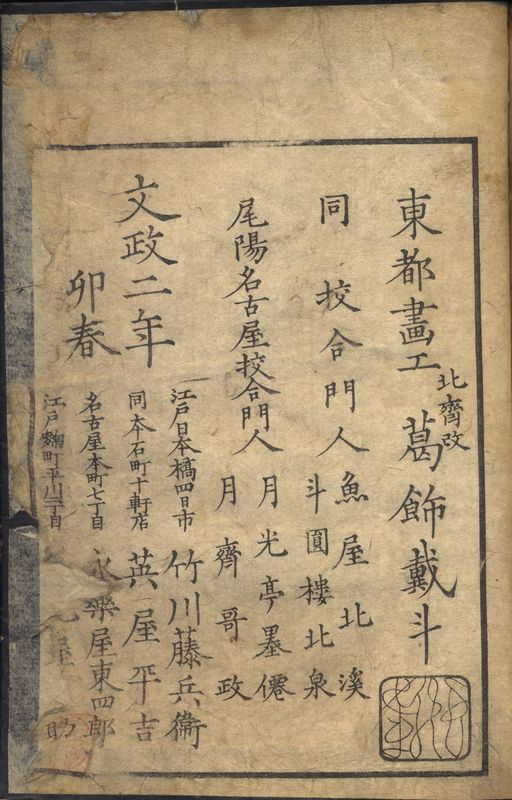 東都畫工 北齋改 葛飾戴斗
同 挍合門人 魚屋北溪
斗圓樓北泉
尾陽名古屋挍合門人 月光亭墨僊
月齋哥政
文政二年
卯春
江戸日本橋四日市 竹川藤兵衞
同本石町十軒店 英屋平吉
名古屋本町七丁目 永樂屋東四郎
江戸麹町平川二丁目 助